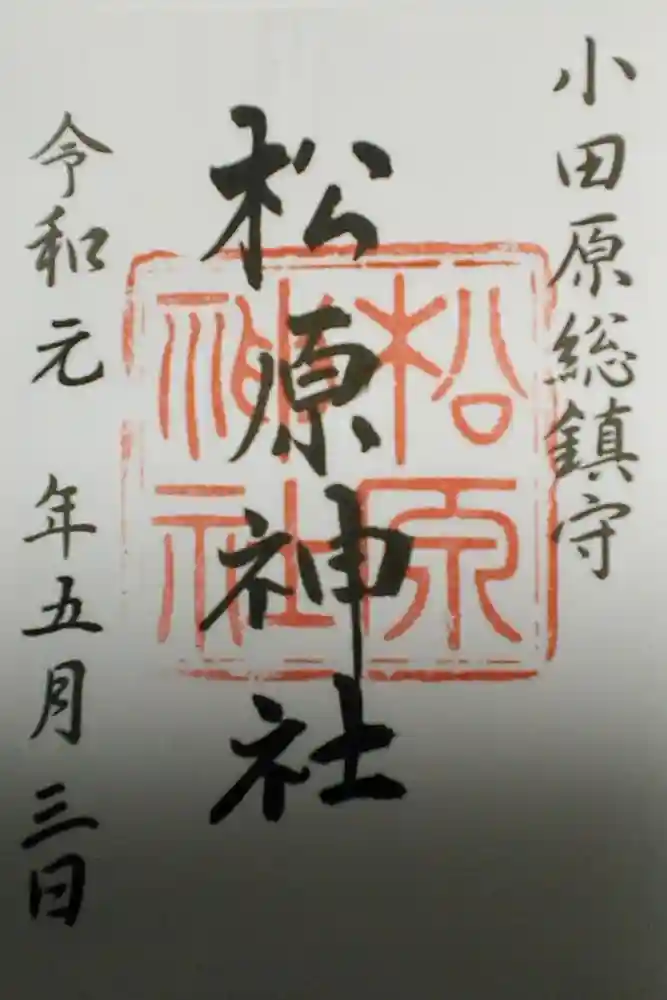 小田原総鎮守
松原神社
松原神社
令和元年五月三日